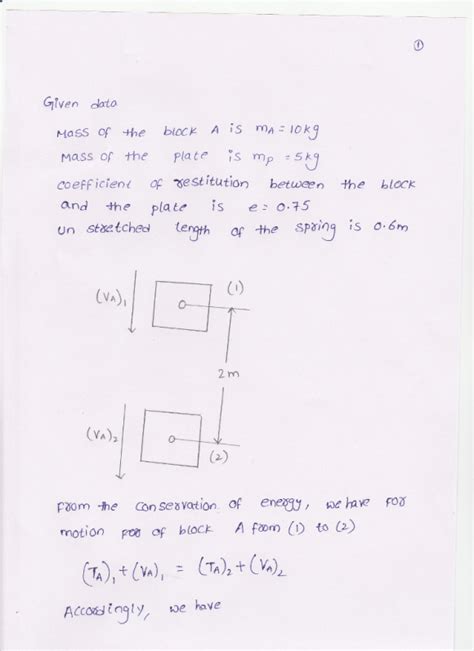 ①
Given data
Mass of the block A is mA = 10kg
Mass of the plate is mp = 5kg
coefficient of restitution between the block
and the plate is e = 0.75
Un stretched length of the spring is 0.6m
(VA)1
(1)
2m
(VA)2
(2)
From the conservation of energy, we have for
motion of block A from (1) to (2)
(TA)1 + (VA)1 = (TA)2 + (VA)2
Accordingly, we have